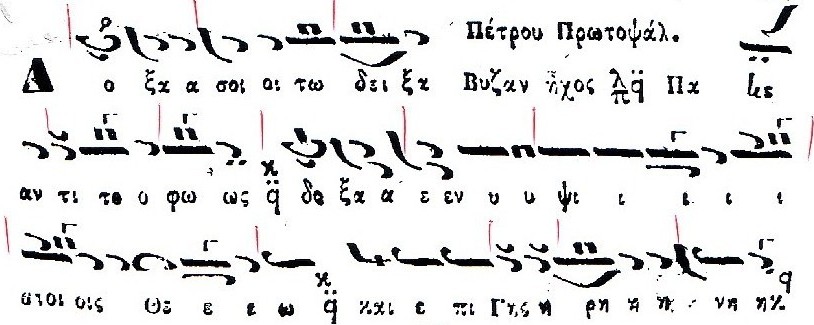 Πέτρου Πρωτοψάλ.
Δ ο ξα α σοι οι τω δει ξα Βυζαν ἦχος λπq Πα
αν τι το ο φω ως q δο ξα α ε εν υ υ ψι ι ι ι ι
στοι οις Θε ε ε ω q και ε πι Γης η ρη η η νη